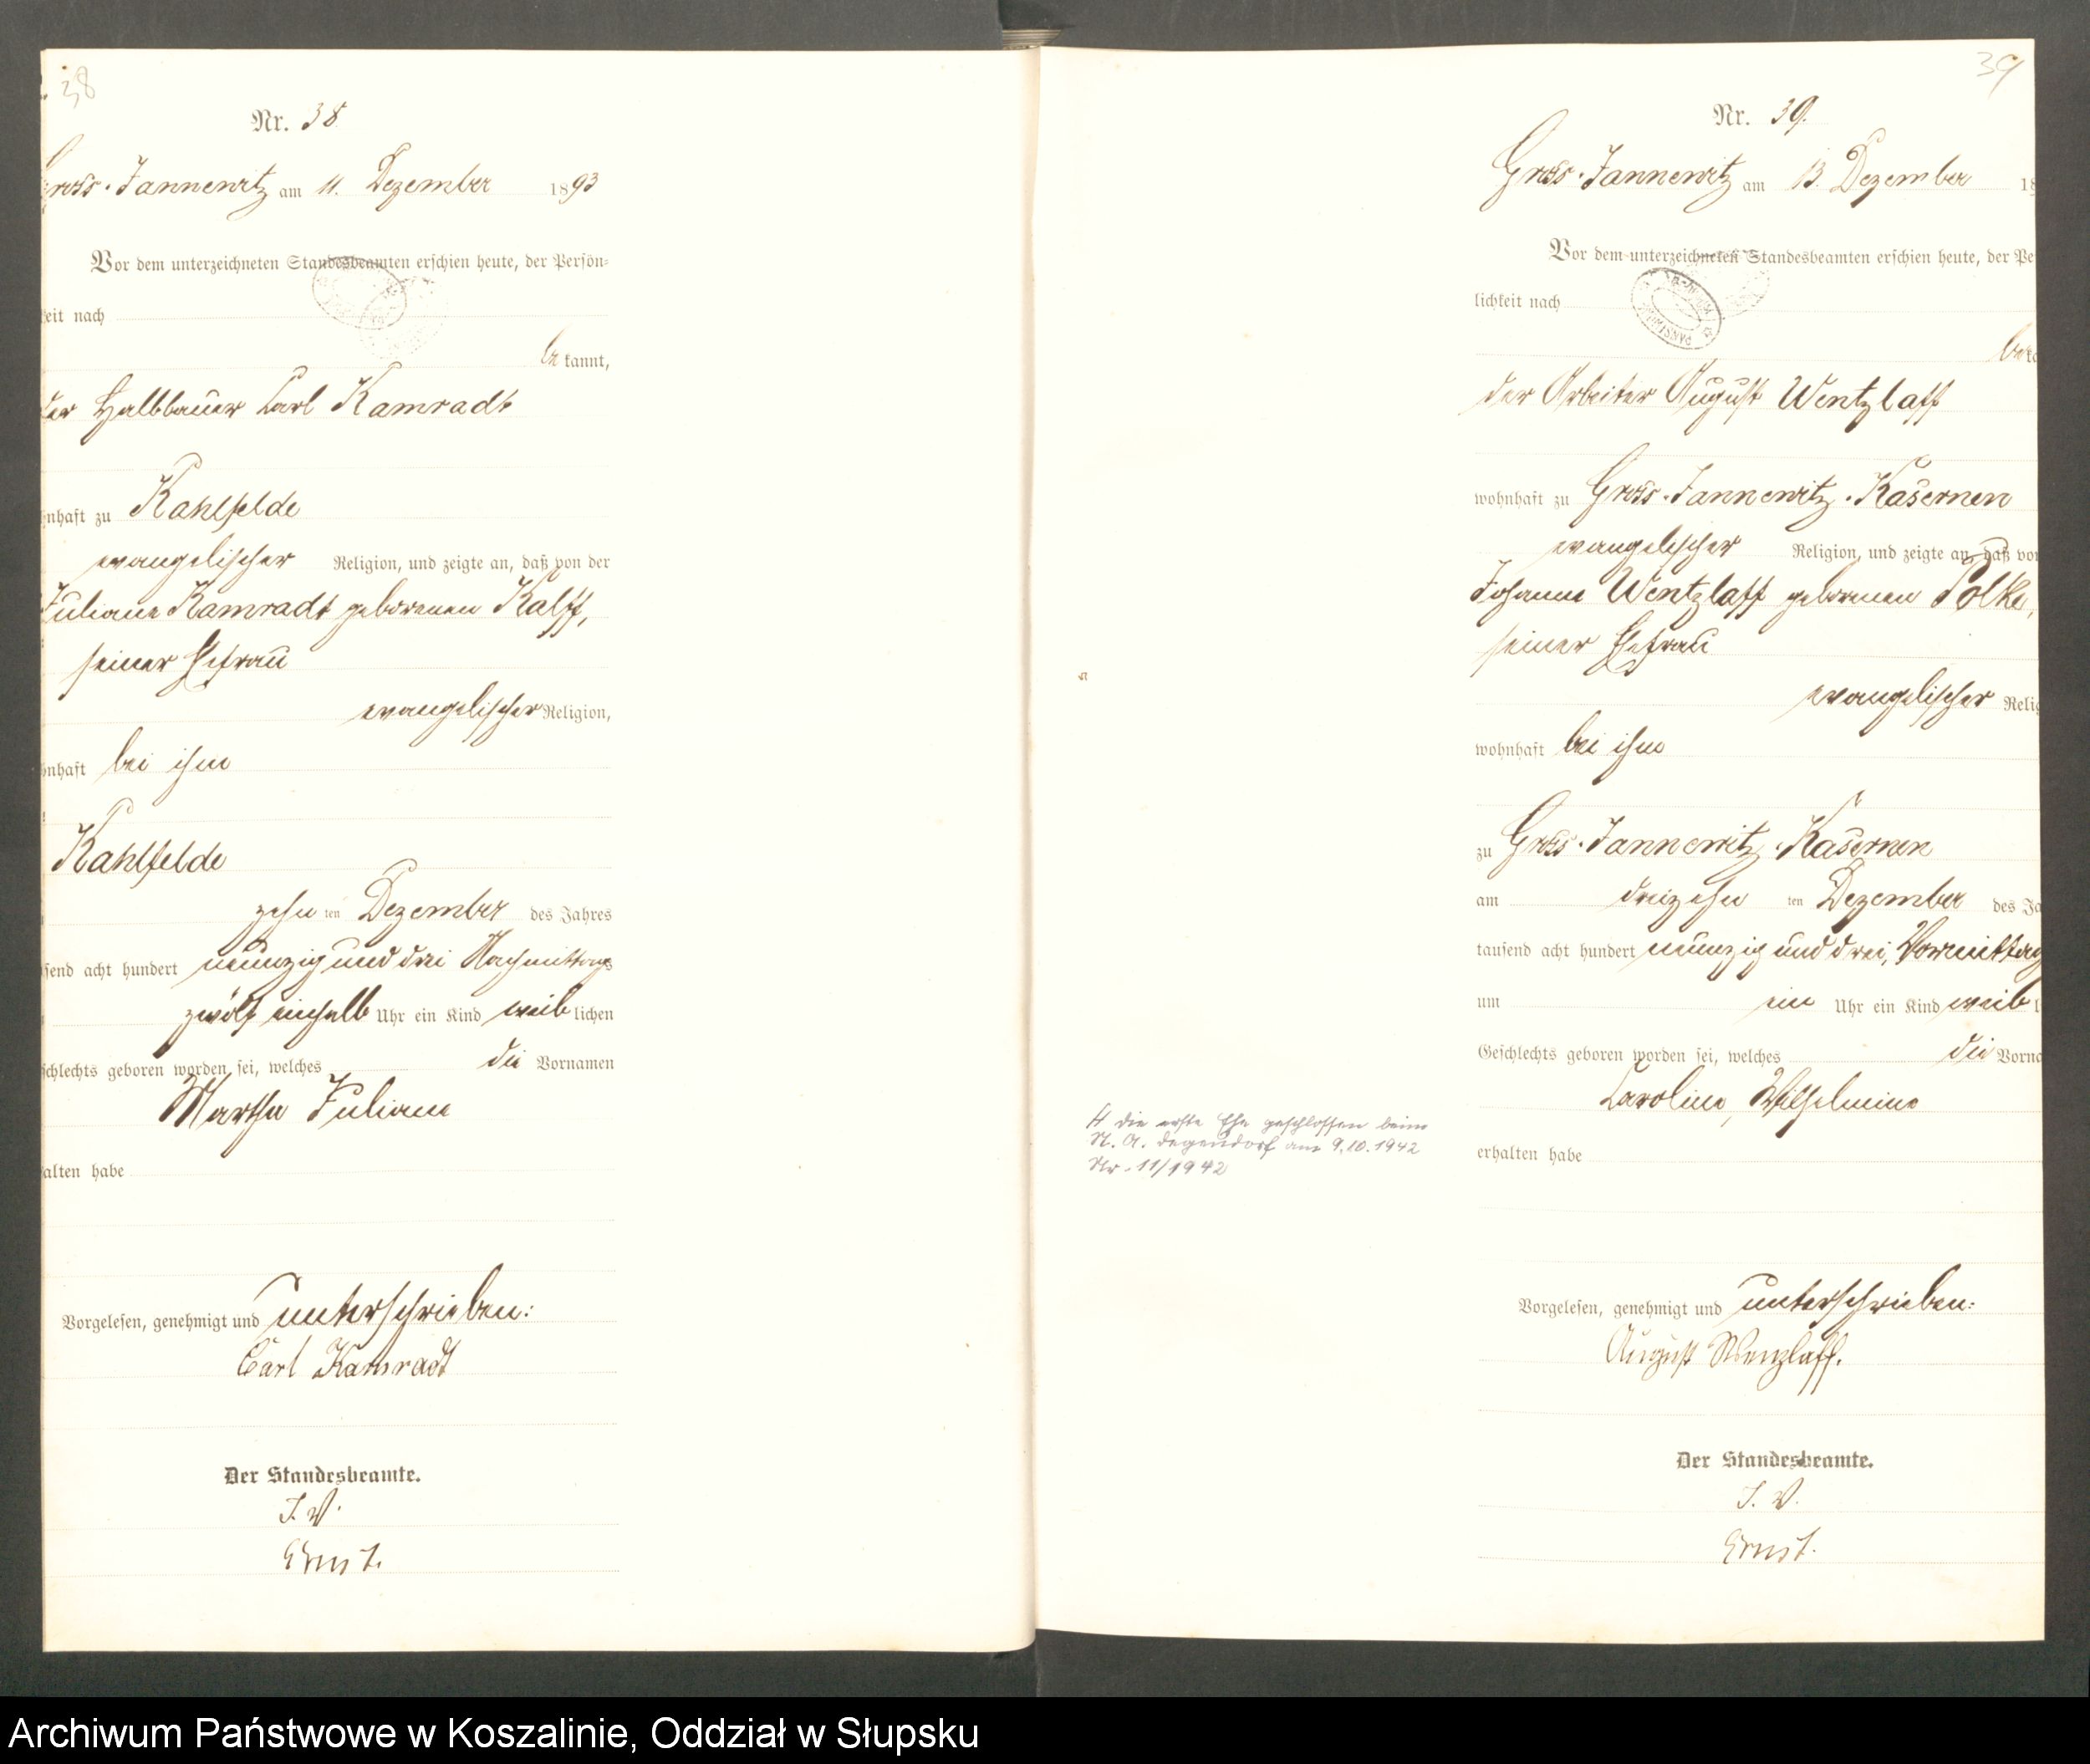 38
Nr. 38.
Gross-Jannewitz am 11. Dezember 1893
Vor dem unterzeichneten Standesbeamten erschien heute, der Persön-
keit nach
bekannt,
der Halbbauer Carl Kamradt
nhaft zu Kahlfelde
evangelischer Religion, und zeigte an, daß von der
Juliane Kamradt geborenen Kalff,
seiner Ehefrau
evangelischer Religion,
nhaft bei ihm
Kahlfelde
zehnten Dezember des Jahres
send acht hundert neunzig und drei Nachmittags
zwölf einhalb Uhr ein Kind weiblichen
schlechts geboren worden sei, welches die Vornamen
Martha Juliane
alten habe
Vorgelesen, genehmigt und unterschrieben:
Carl Kamradt
Der Standesbeamte.
J. V.
Ernst.
39
Nr. 39.
Gross-Jannewitz am 13. Dezember 18
Vor dem unterzeichneten Standesbeamten erschien heute, der Pe
lichkeit nach
beka
der Arbeiter August Wentzlaff
wohnhaft zu Gross-Jannewitz-Kasernen
evangelischer Religion, und zeigte an, daß von
Johanne Wentzlaff geborenen Polke,
seiner Ehefrau
evangelischer Relig
wohnhaft bei ihm
zu Gross-Jannewitz-Kasernen
am dreizehnten Dezember des Ja
tausend acht hundert neunzig und drei, Vormittag
um ein Uhr ein Kind weibl
Geschlechts geboren worden sei, welches die Vorna
Caroline, Wilhelmine
erhalten habe
Vorgelesen, genehmigt und unterschrieben:
August Wenzlaff.
Der Standesbeamte.
J. V.
Ernst.
die erste Ehe geschlossen beim
St. A. Degendorf am 9.10.1942
Nr. 11/1942
Archiwum Państwowe w Koszalinie, Oddział w Słupsku